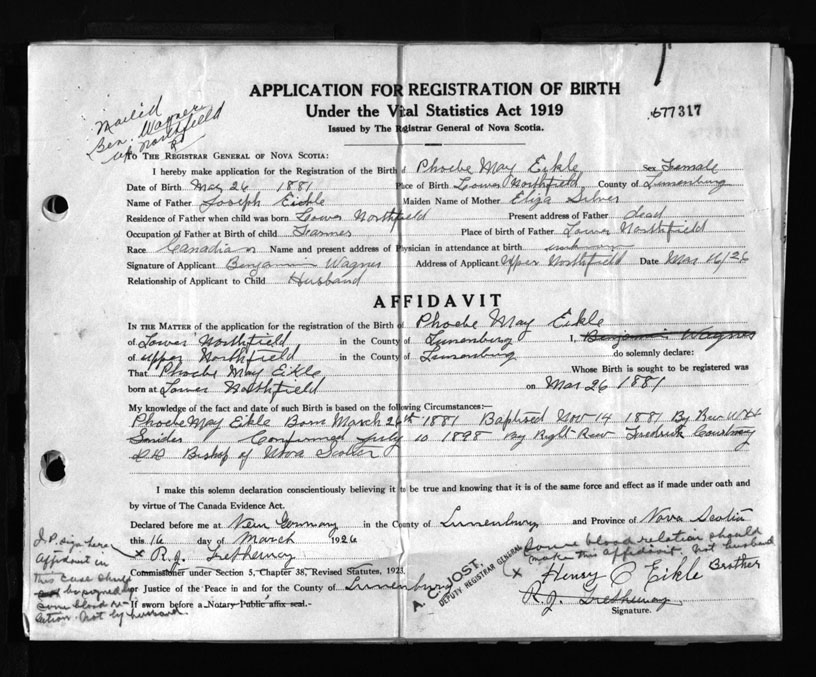 APPLICATION FOR REGISTRATION OF BIRTH
Under the Vital Statistics Act 1919
Issued by The Registrar General of Nova Scotia.
577317
Mailed
Ben. Wagner
up Northfield
TO THE REGISTRAR GENERAL OF NOVA SCOTIA:
I hereby make application for the Registration of the Birth of Phoebe May Eikle Sex Female
Date of Birth Mar 26 1881 Place of Birth Lower Northfield County of Lunenburg
Name of Father Joseph Eickle Maiden Name of Mother Eliza Silver
Residence of Father when child was born Lower Northfield Present address of Father dead
Occupation of Father at Birth of child Farmer Place of birth of Father Lower Northfield
Race Canadian Name and present address of Physician in attendance at birth unknown
Signature of Applicant Benjamin Wagner Address of Applicant Upper Northfield Date Mar 16/26
Relationship of Applicant to Child Husband
AFFIDAVIT
IN THE MATTER of the application for the registration of the Birth of Phoebe May Eikle
of Lower Northfield in the County of Lunenburg I, Benjamin Wagner
of upper Northfield in the County of Lunenburg do solemnly declare:
That Phoebe May Eikle Whose Birth is sought to be registered was
born at Lower Northfield on Mar 26 1881
My knowledge of the fact and date of such Birth is based on the following Circumstances:—
Phoebe May Eikle Born March 26th 1881 Baptised Nov 14 1881 By Rev
Snider Confirmed July 10 1898 by Right Rev Fredrick Courtney
DD Bishop of Nova Scotia
I make this solemn declaration conscientiously believing it to be true and knowing that it is of the same force and effect as if made under oath and
by virtue of The Canada Evidence Act.
Declared before me at New Germany in the County of Lunenburg and Province of Nova Scotia
this 16 day of March 1926
x R. J. Tretheway
Commissioner under Section 5, Chapter 38, Revised Statutes, 1923.
or Justice of the Peace in and for the County of Lunenburg
If sworn before a Notary Public affix seal.
J.P. sign here
Affidavit in
this case should
be signed by
some blood re-
lation. Not by husband.
A. C. JOST,
DEPUTY REGISTRAR GENERAL
Some blood relation should
make this affidavit. Not husband
x Henry C Eikle Brother
R. J. Tretheway
Signature.